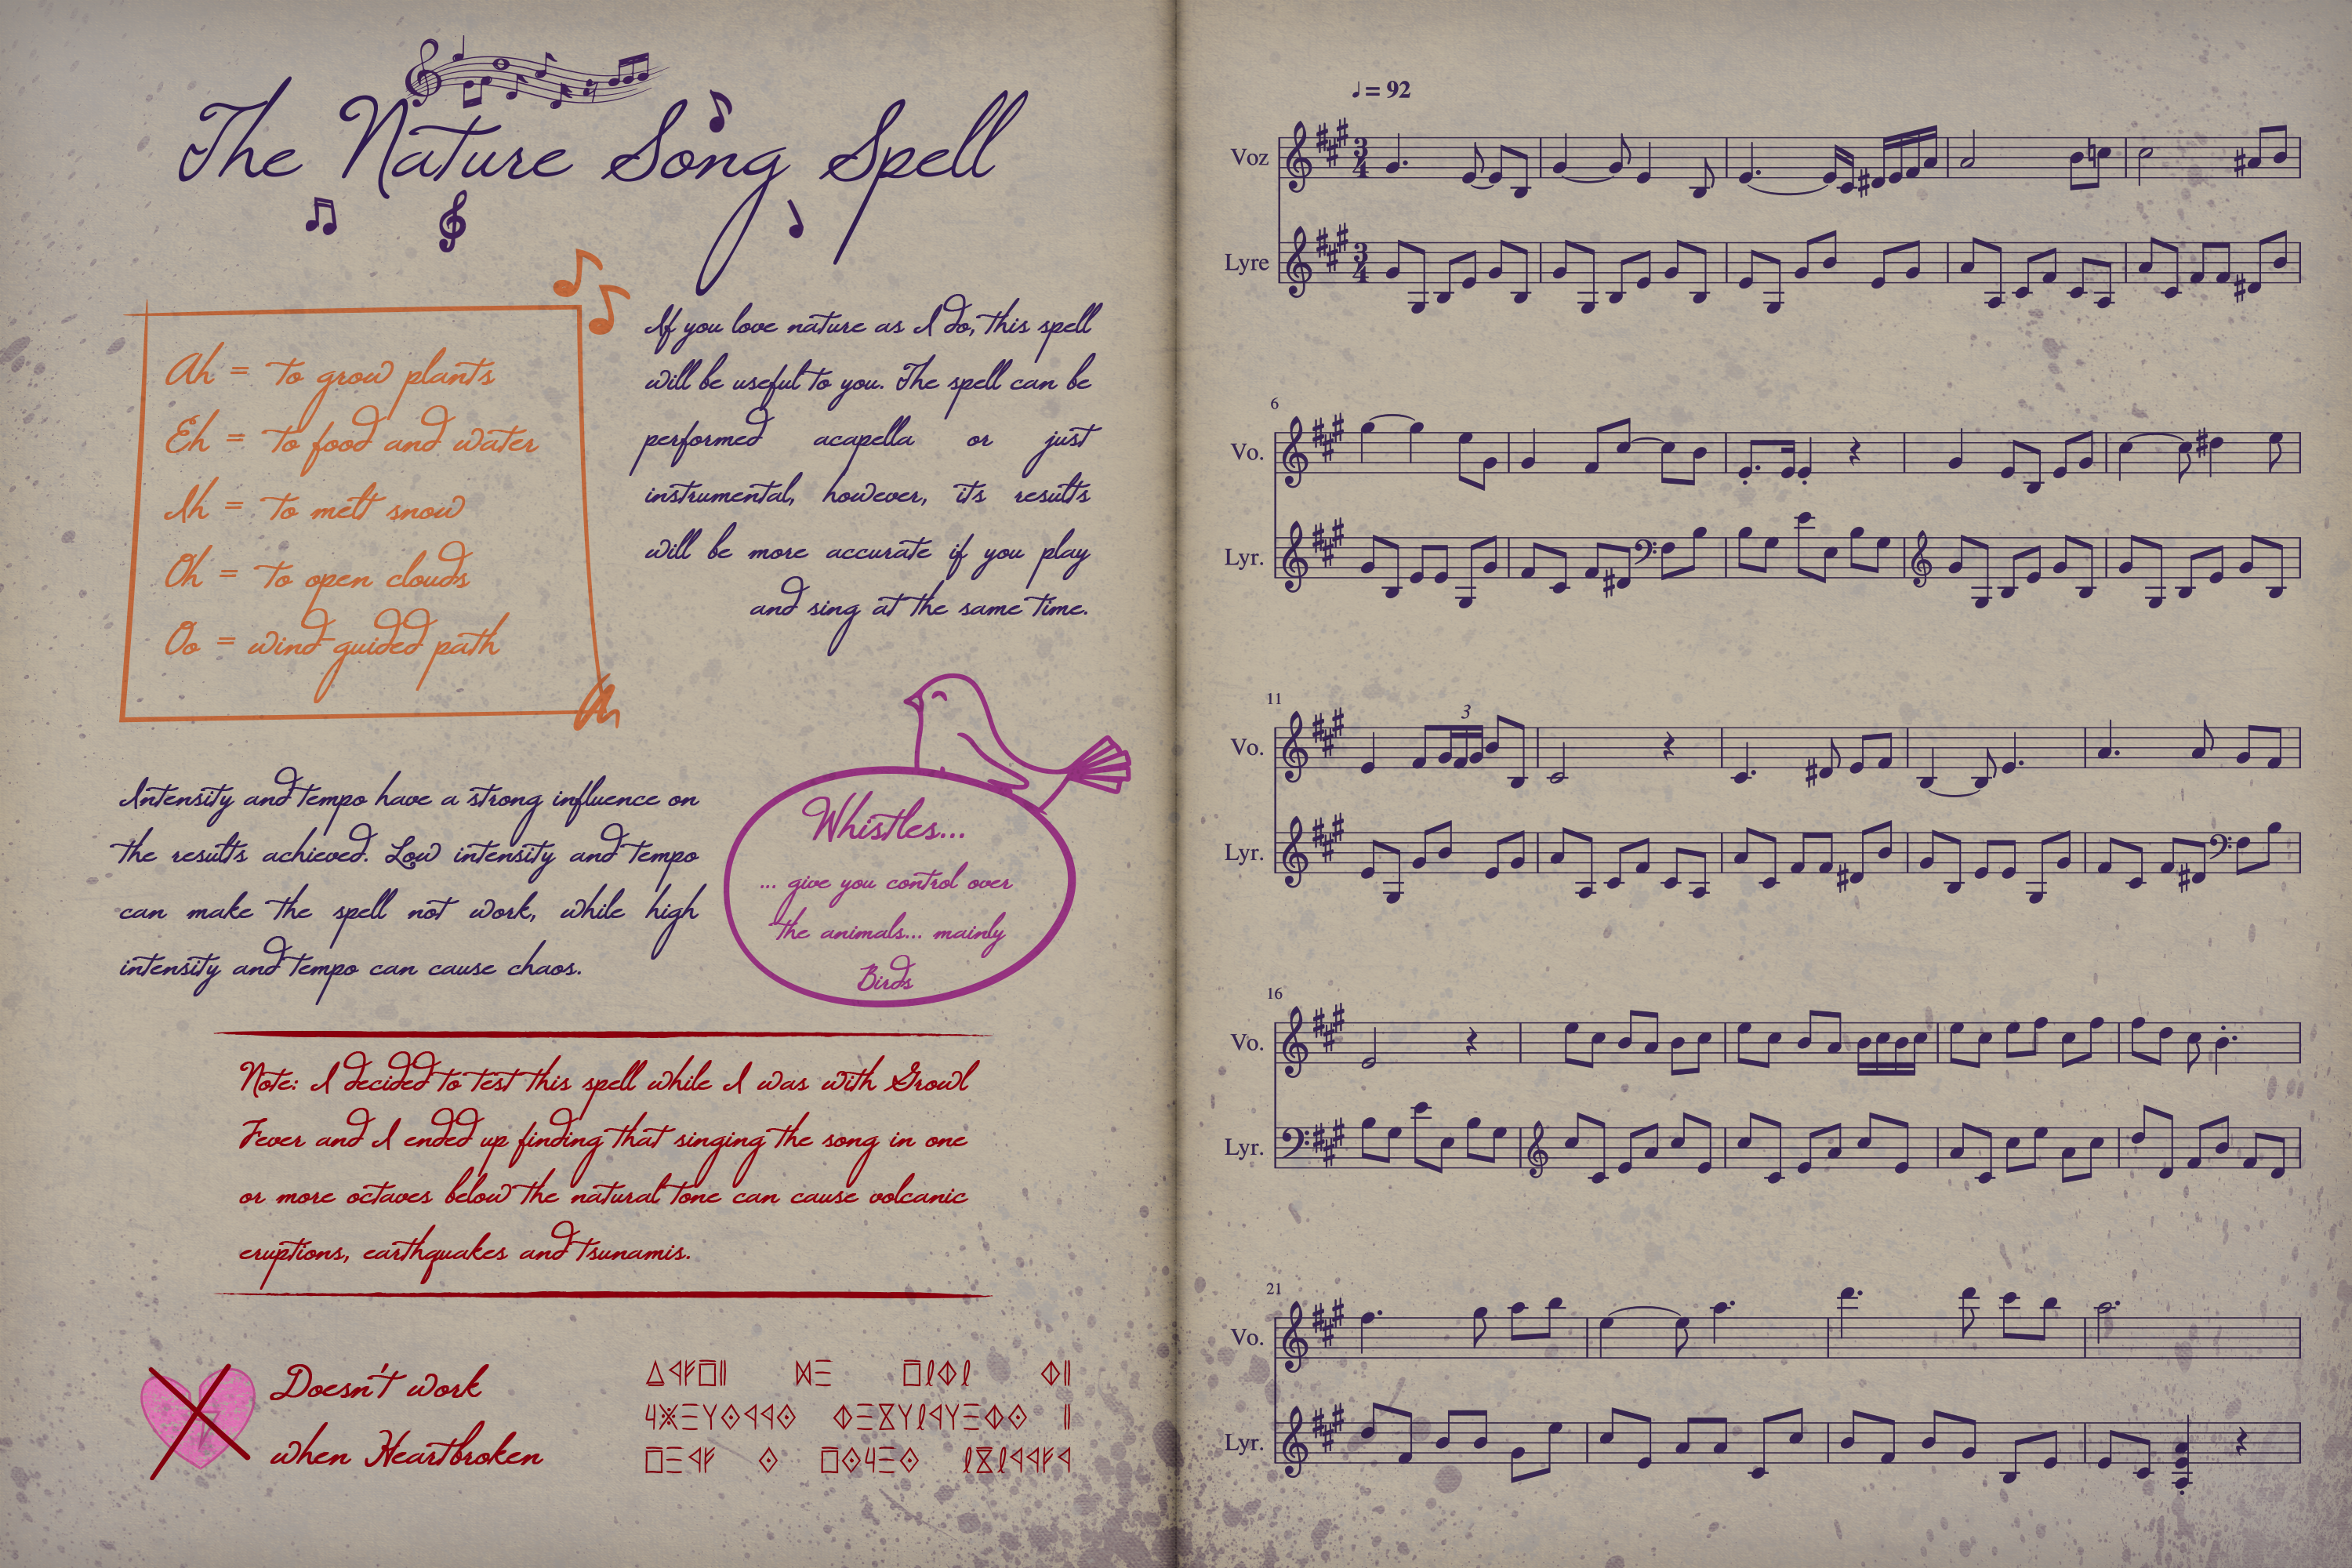 The Nature Song Spell
Ah = to grow plants
Eh = to food and water
Ih = to melt snow
Oh = to open clouds
Oo = wind guided path
If you love nature as I do, this spell
will be useful to you. The spell can be
performed acapella or just
instrumental, however, its results
will be more accurate if you play
and sing at the same time.
Intensity and tempo have a strong influence on
the results achieved. Low intensity and tempo
can make the spell not work, while high
intensity and tempo can cause chaos.
Whistles...
... give you control over
the animals... mainly
Birds
Note: I decided to test this spell while I was with Growl
Fever and I ended up finding that singing the song in one
or more octaves below the natural tone can cause volcanic
eruptions, earthquakes and tsunamis.
Doesn't work
when Heartbroken
♩ = 92
Voz
3/4
Lyre
3/4
6
Vo.
Lyr.
11
3
Vo.
Lyr.
16
Vo.
Lyr.
21
Vo.
Lyr.